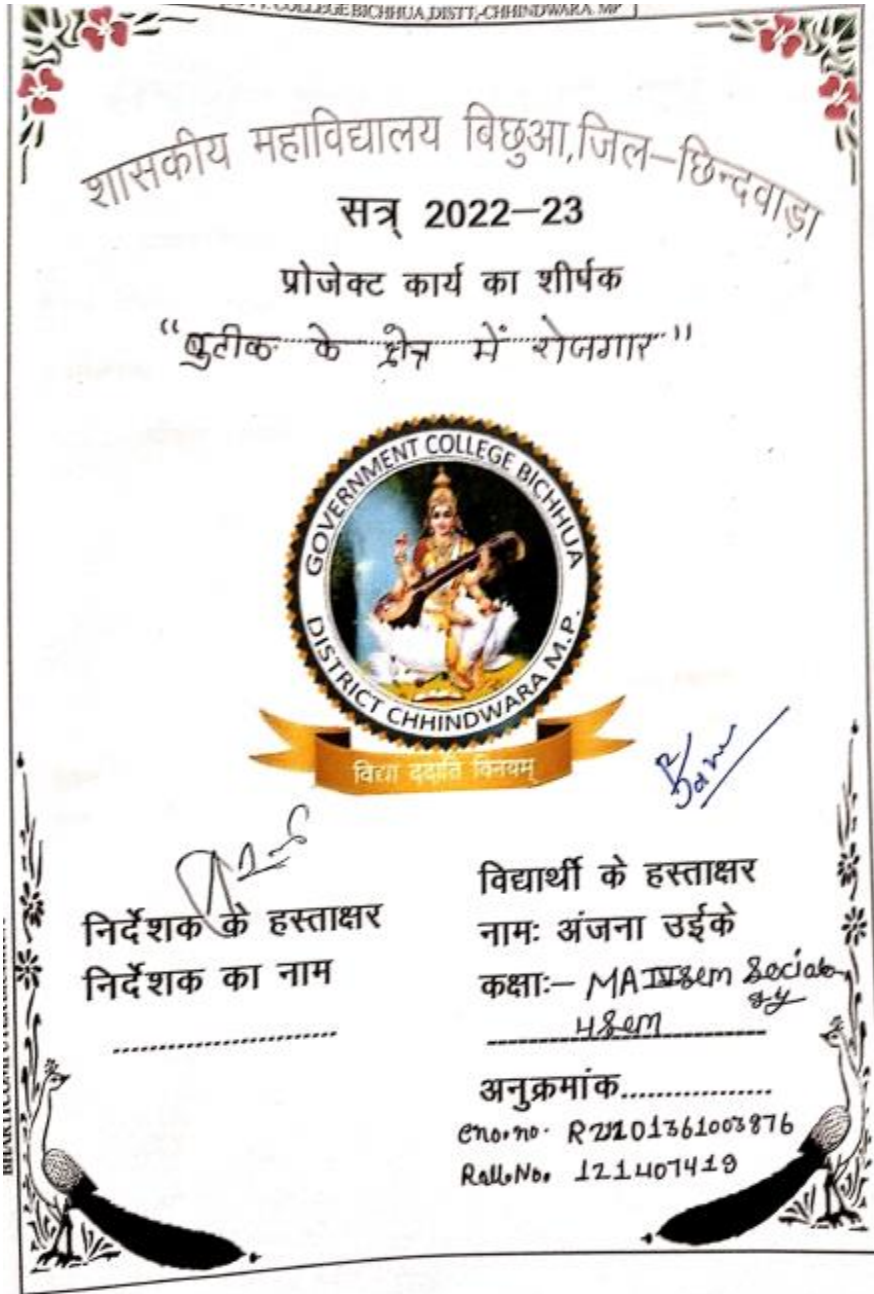 COLLEGE BICHHUA, DISTT,-CHHINDWARA. MP
शासकीय महाविद्यालय विछुआ,जिल–छिन्दवाड़ा
सत्र् 2022–23
प्रोजेक्ट कार्य का शीर्षक
“बुटीक के क्षेत्र में रोजगार”
GOVERNMENT COLLEGE BICHHUA
DISTRICT CHHINDWARA M.P.
विद्या ददाति विनयम्
निर्देशक के हस्ताक्षर
निर्देशक का नाम
विद्यार्थी के हस्ताक्षर
नामः अंजना उईके
कक्षाः– MA IV sem Sociology
4 Sem
अनुक्रमांक................
eno.no. R2101361003876
Roll.No. 121407419